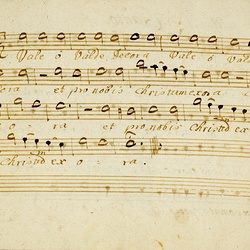 Vale o valde decora Vale o val
ora et pro nobis Christum exora
o ra et pro nobis Christū ex
Christū ex o ra.